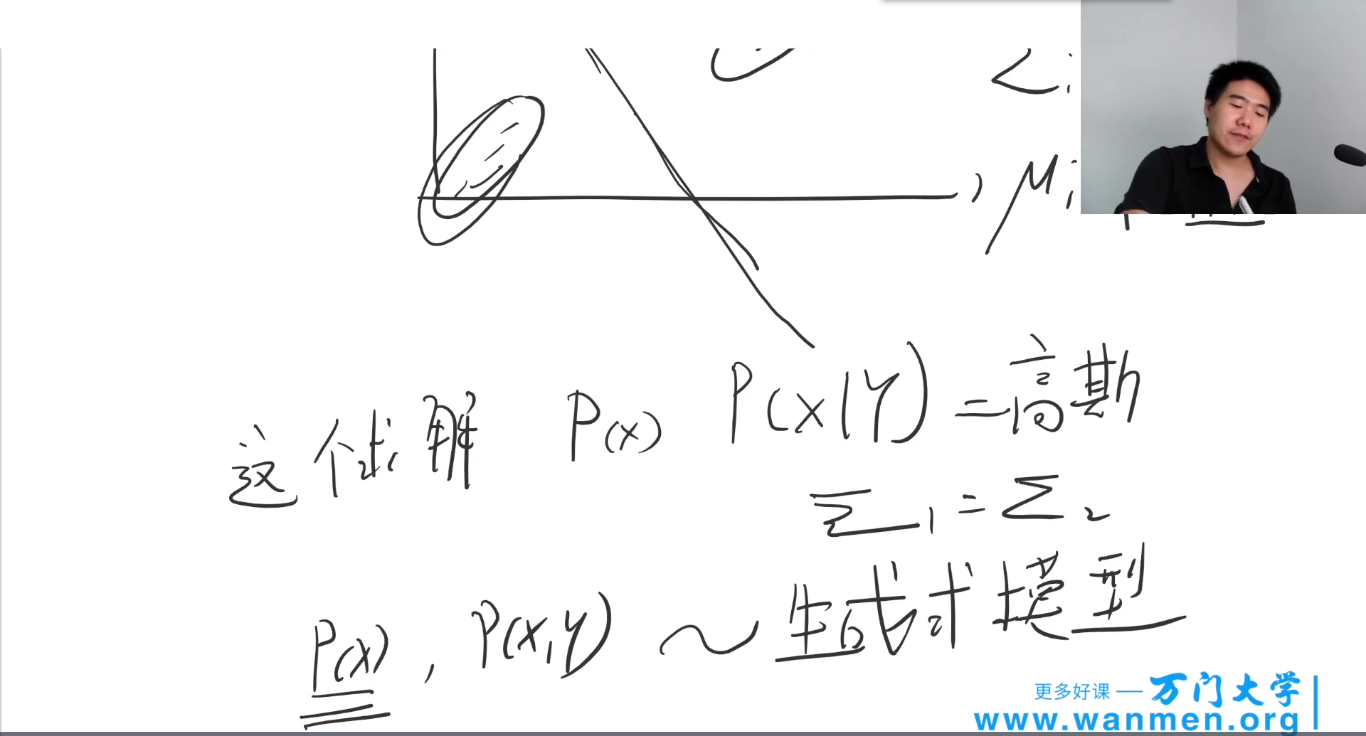 μi
这个求解 P(x) P(x|Y)=高斯
Σ1=Σ2
P(x), P(x,y) ~ 生成式模型
更多好课 — 万门大学
www.wanmen.org